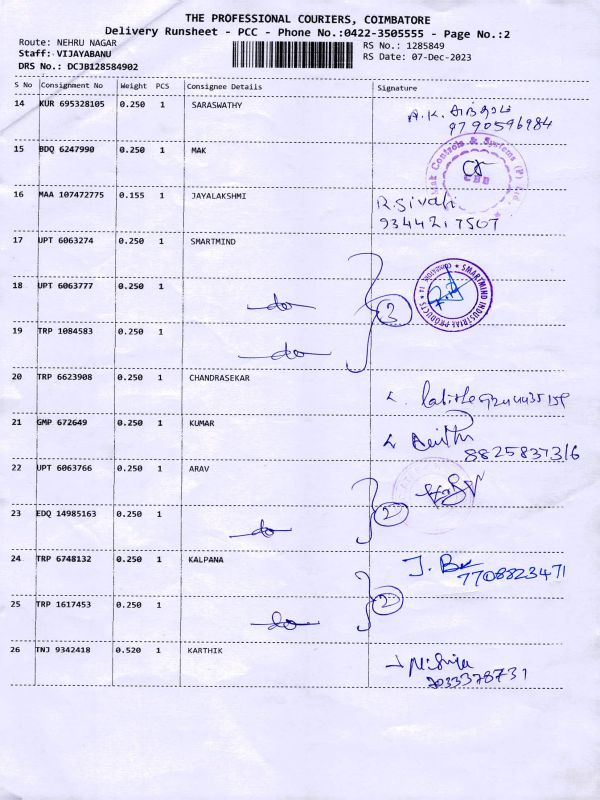 THE PROFESSIONAL COURIERS, COIMBATORE
Delivery Runsheet - PCC - Phone No.:0422-3505555 - Page No.:2
Route: NEHRU NAGAR
Staff: VIJAYABANU
DRS No.: DCJB128584902
RS No.: 1285849
RS Date: 07-Dec-2023
S No Consignment No Weight PCS Consignee Details Signature
14 KUR 695328105 0.250 1 SARASWATHY
A.K.
9790596984
15 BDQ 6247990 0.250 1 MAK
Mak Controls & Systems (P) Ltd
CBD
16 MAA 107472775 0.155 1 JAYALAKSHMI
R.Sivali
9344217507
17 UPT 6063274 0.250 1 SMARTMIND
18 UPT 6063777 0.250 1 do 3
SMARTMIND INDUSTRIAL PRODUCTS
19 TRP 1084583 0.250 1 do
20 TRP 6623908 0.250 1 CHANDRASEKAR
21 GMP 672649 0.250 1 KUMAR
8825837316
22 UPT 6063766 0.250 1 ARAV
23 EDQ 14985163 0.250 1 do 2
24 TRP 6748132 0.250 1 KALPANA
7708823471
25 TRP 1617453 0.250 1 do 2
26 TNJ 9342418 0.520 1 KARTHIK
7033378731